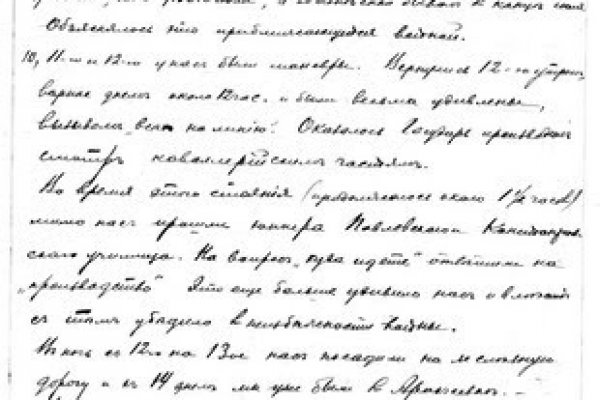 Объяснялось это приближающейся войной.
10, 11-го и 12-го у нас были маневры. Вернулись 12-го утром,
вернее днем около 12 час. и были весьма удивлены,
вызовом „всех на линию". Оказалось Государь производит
смотр кавалерийским частям.
Во время этого стояния (продолжалось около 1½ часов)
мимо нас прошли юнкера Павловского
ского училища. На вопрос „куда идете" ответили на
„производство" Это еще больше удивило нас и
с этим убедило в неизбежности войны.
В ночь с 12-го на 13-ое нас посадили на железную
дорогу и к 14 днем мы уже были в